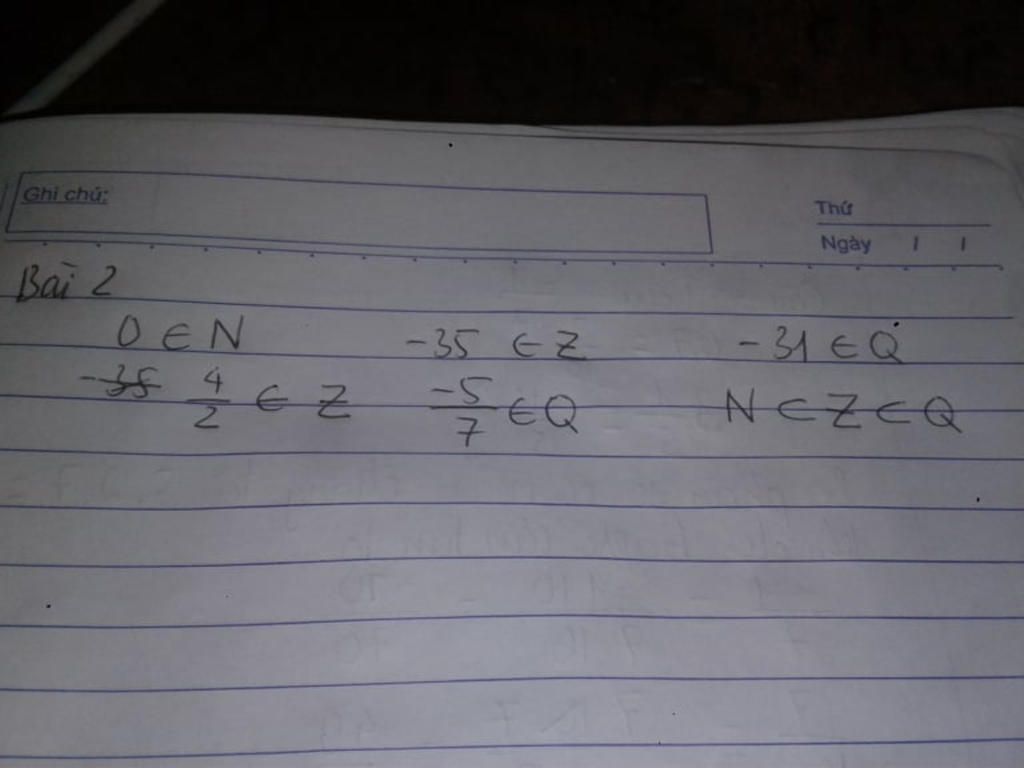 Ghi chú:
Thứ
Ngày / /
Bài 2
0 ∈ N -35 ∈ Z -31 ∈ Q
-35 4/2 ∈ Z -5/7 ∈ Q N ⊂ Z ⊂ Q